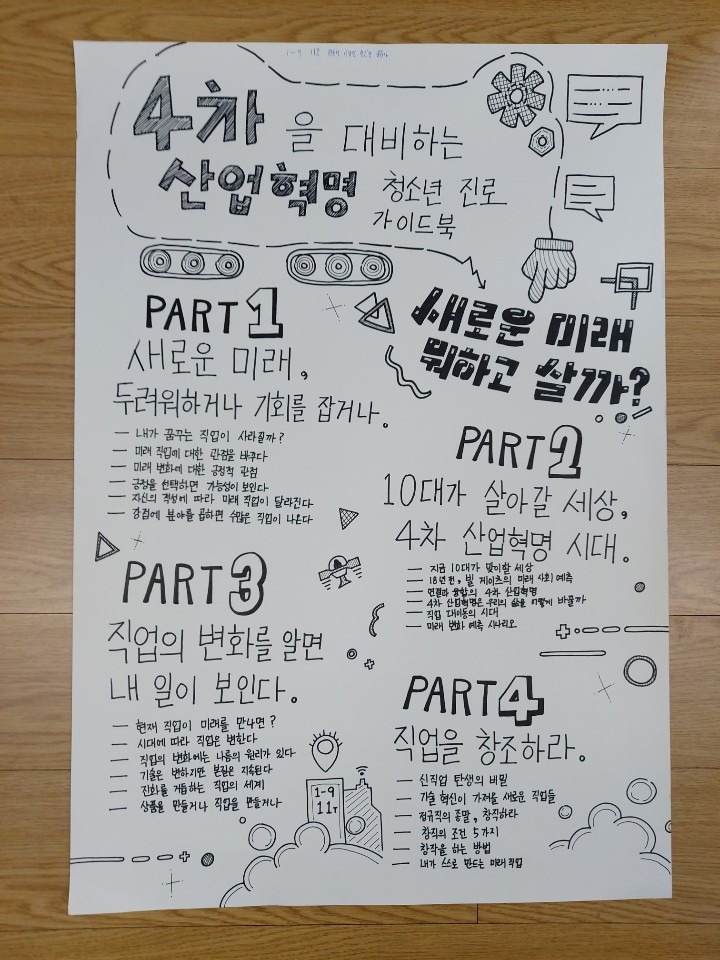 4차 을 대비하는
산업혁명 청소년 진로
가이드북
새로운 미래
뭐하고 살까?
PART 1
새로운 미래,
두려워하거나 기회를 잡거나.
— 내가 꿈꾸는 직업이 사라질까?
— 미래 직업에 대한 관점을 바꾸다
— 미래 변화에 대한 긍정적 관점
— 긍정을 선택하면 가능성이 보인다
— 자신의 적성에 따라 미래 직업이 달라진다
— 강점에 분야를 곱하면 수많은 직업이 나온다
PART 2
10대가 살아갈 세상,
4차 산업혁명 시대.
— 지금 10대가 맞이할 세상
— 18년 전, 빌 게이츠의 미래 사회 예측
— 연결과 융합의 4차 산업혁명
— 4차 산업혁명은 우리의 삶을 어떻게 바꿀까
— 직업 대이동의 시대
— 미래 변화 예측 시나리오
PART 3
직업의 변화를 알면
내 일이 보인다.
— 현재 직업이 미래를 만나면?
— 시대에 따라 직업은 변한다
— 직업의 변화에는 나름의 원리가 있다
— 기술은 변하지만 본질은 지속된다
— 진화를 거듭하는 직업의 세계
— 상품을 만들거나 직업을 만들거나
1-9
11T
PART 4
직업을 창조하라.
— 신직업 탄생의 비밀
— 기술 혁신이 가져올 새로운 직업들
— 정규직의 종말, 창직하라
— 창직의 조건 5가지
— 창작을 하는 방법
— 내가 스스로 만드는 미래 직업